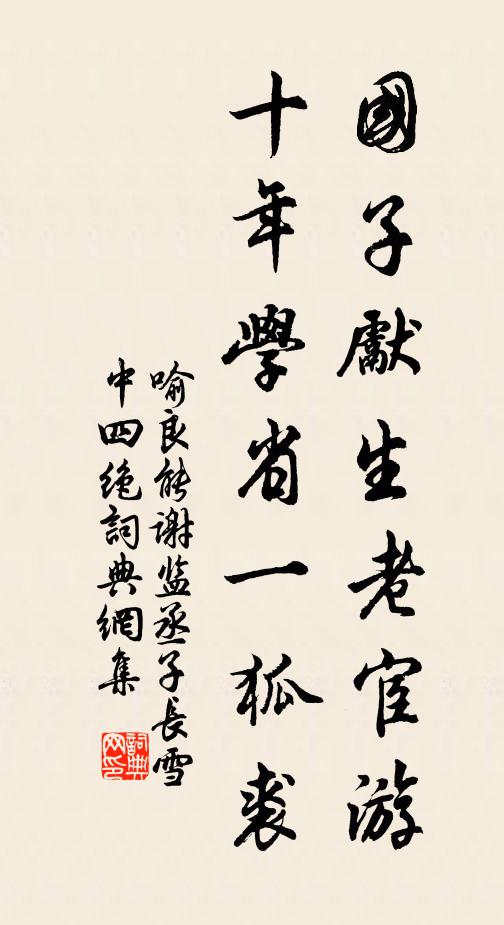 國子獻生老宦游
十年學省一狐裘
喻良能谢监丞子長雪
中四絶詞典網集
詞典网印